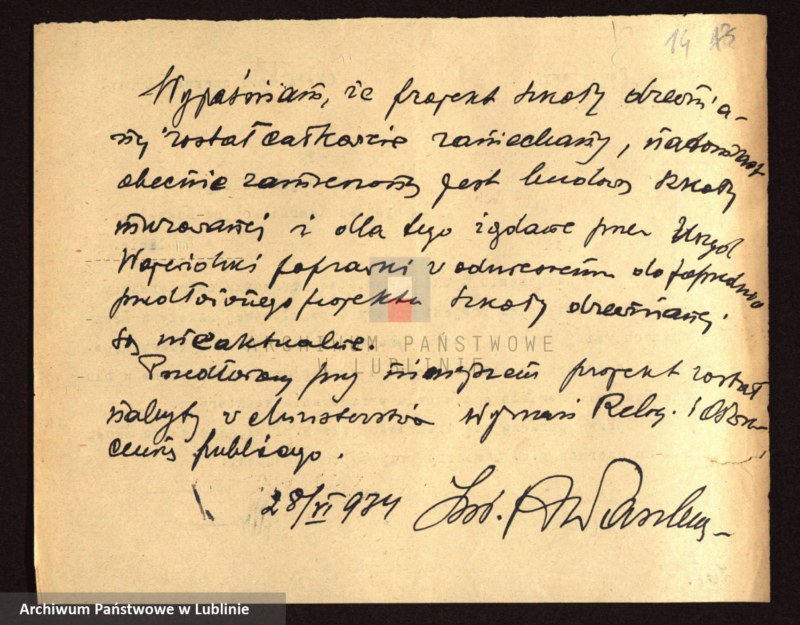 14 13
Wyjaśniam, że projekt szkoły drewnia-
nej został całkowicie zaniechany, natomiast
obecnie zamierzona jest budowa szkoły
murowanej i dla tego żądane przez Urząd
Wojewódzki poprawki w odniesieniu do poprzednio
przedłożonego projektu szkoły drewnianej
są nieaktualne.
Przedłożony przy niniejszem projekt został
nabyty w Ministerstwie Wyznań Relig. i Oświe-
cenia publicznego.
28/VI 934 Inż.
ARCHIWUM PAŃSTWOWE
W LUBLINIE
Archiwum Państwowe w Lublinie